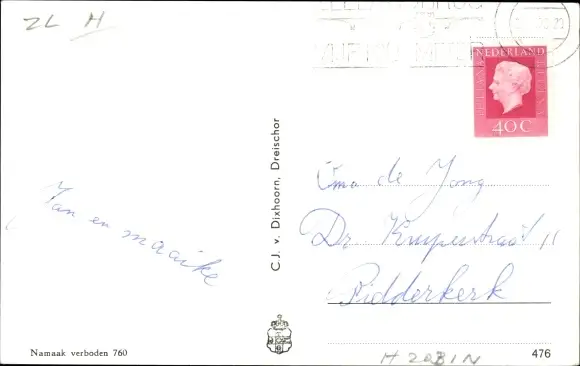 ZL H
NEDERLAND
JULIANA REGINA
40 C
C.J. v. Dixhoorn, Dreischor
Jan en maaike
Oma de Jong
Dr Kuyperstraat 11
Ridderkerk
Namaak verboden 760
476